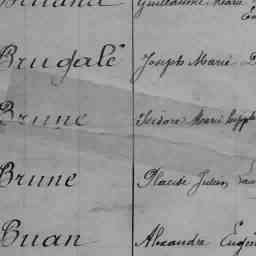 Guillaume Marie
Brugalé Joseph Marie
Brune Isidore Marie
Brune Placide Julien
Buan Alexandre Eugène